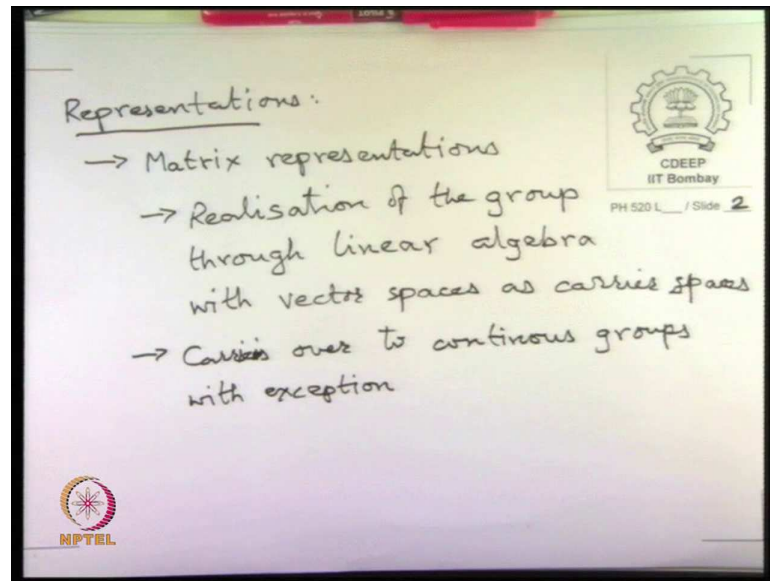 Representations:
→ Matrix representations
→ Realisation of the group
through linear algebra
with vector spaces as carrier spaces
→ Carries over to continous groups
with exception
CDEEP
IIT Bombay
PH 520 L___ / Slide 2
NPTEL